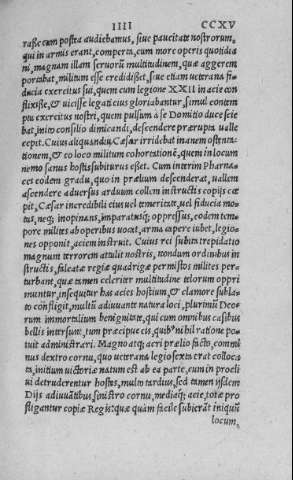 IIII CCXV
rasse cum postea audiebamus, siue paucitate nostrorum,
qui in armis erant, comperta, cum more operis quotidia
ni, magnam illam seruorũ multitudinem, quæ aggerem
portabat, militum esse credidisset, siue etiam ueterana fi
ducia exercitus sui, quem cum legione XXII in acie con
flixisse, & uicisse legati eius gloriabantur, simul contem
ptu exercitus nostri, quem pulsum à se Domitio duce scie
bat, inito consilio dimicandi, descendere prærupta ualle
cœpit. Cuius aliquandiu Cæsar irridebat inanem ostenta
tionem, & eo loco militum cohortationẽ, quem in locum
nemo sanus hostis subiturus esset. Cum interim Pharna
ces eodem gradu, quo in prælium descenderat, uallem
ascendere aduersus arduum collem instructis copijs cœ
pit, Cæsar incredibili eius uel temeritate, uel fiducia mo
tus, neq; inopinans, imparatusq; oppressus, eodem tem
pore milites ab operibus uocat, arma capere iubet, legio
nes opponit, aciem instruit. Cuius rei subita trepidatio
magnum terrorem attulit nostris, nondum ordinibus in
structis, falcatæ regiæ quadrigæ permistos milites pertur
turbant, quæ tamen celeriter multitudine telorum oppri
muntur, insequitur has acies hostium, & clamore subla
to confligit, multũ adiuuante natura loci, plurimũ Deo
rum immortalium benignitate, qui cum omnibus casibus
bellis intersunt, tum præcipue eis, quibꝰ nihil ratione po
tuit administrari. Magno atq; acri prælio facto, commi
nus dextro cornu, quo ueterana legio sexta erat colloca
ta, initium uictoriæ natum est ab ea parte, cum in procli
ui detruderentur hostes, multo tardius, sed tamen ijsdem
Dijs adiuuãtibus, sinistro cornu, mediaq; acie, totæ pro
fligantur copiæ Regis, quæ quàm facilè subierãt iniquũ
locum,